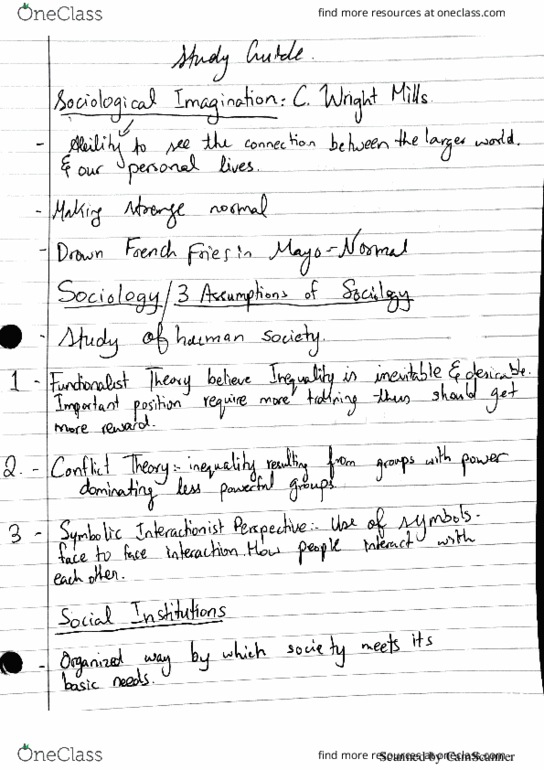 OneClass
find more resources at oneclass.com
Study Guide.
Sociological Imagination: C. Wright Mills.
- Ability to see the connection between the larger world.
& our personal lives.
- Making strange normal
- Drown French Fries in Mayo - Normal
Sociology / 3 Assumptions of Sociology
- Study of human society.
1 - Functionalist Theory believe Inequality is inevitable & desirable.
Important position require more training thus should get
more reward.
2. - Conflict Theory:- inequality resulting from groups with power
dominating less powerful groups
3 - Symbolic Interactionist Perspective:- Use of symbols.
face to face interaction. How people interact with
each other.
Social Institutions
- Organized way by which society meets its
basic needs.
OneClass
find more resources at oneclass.com
Scanned by CamScanner